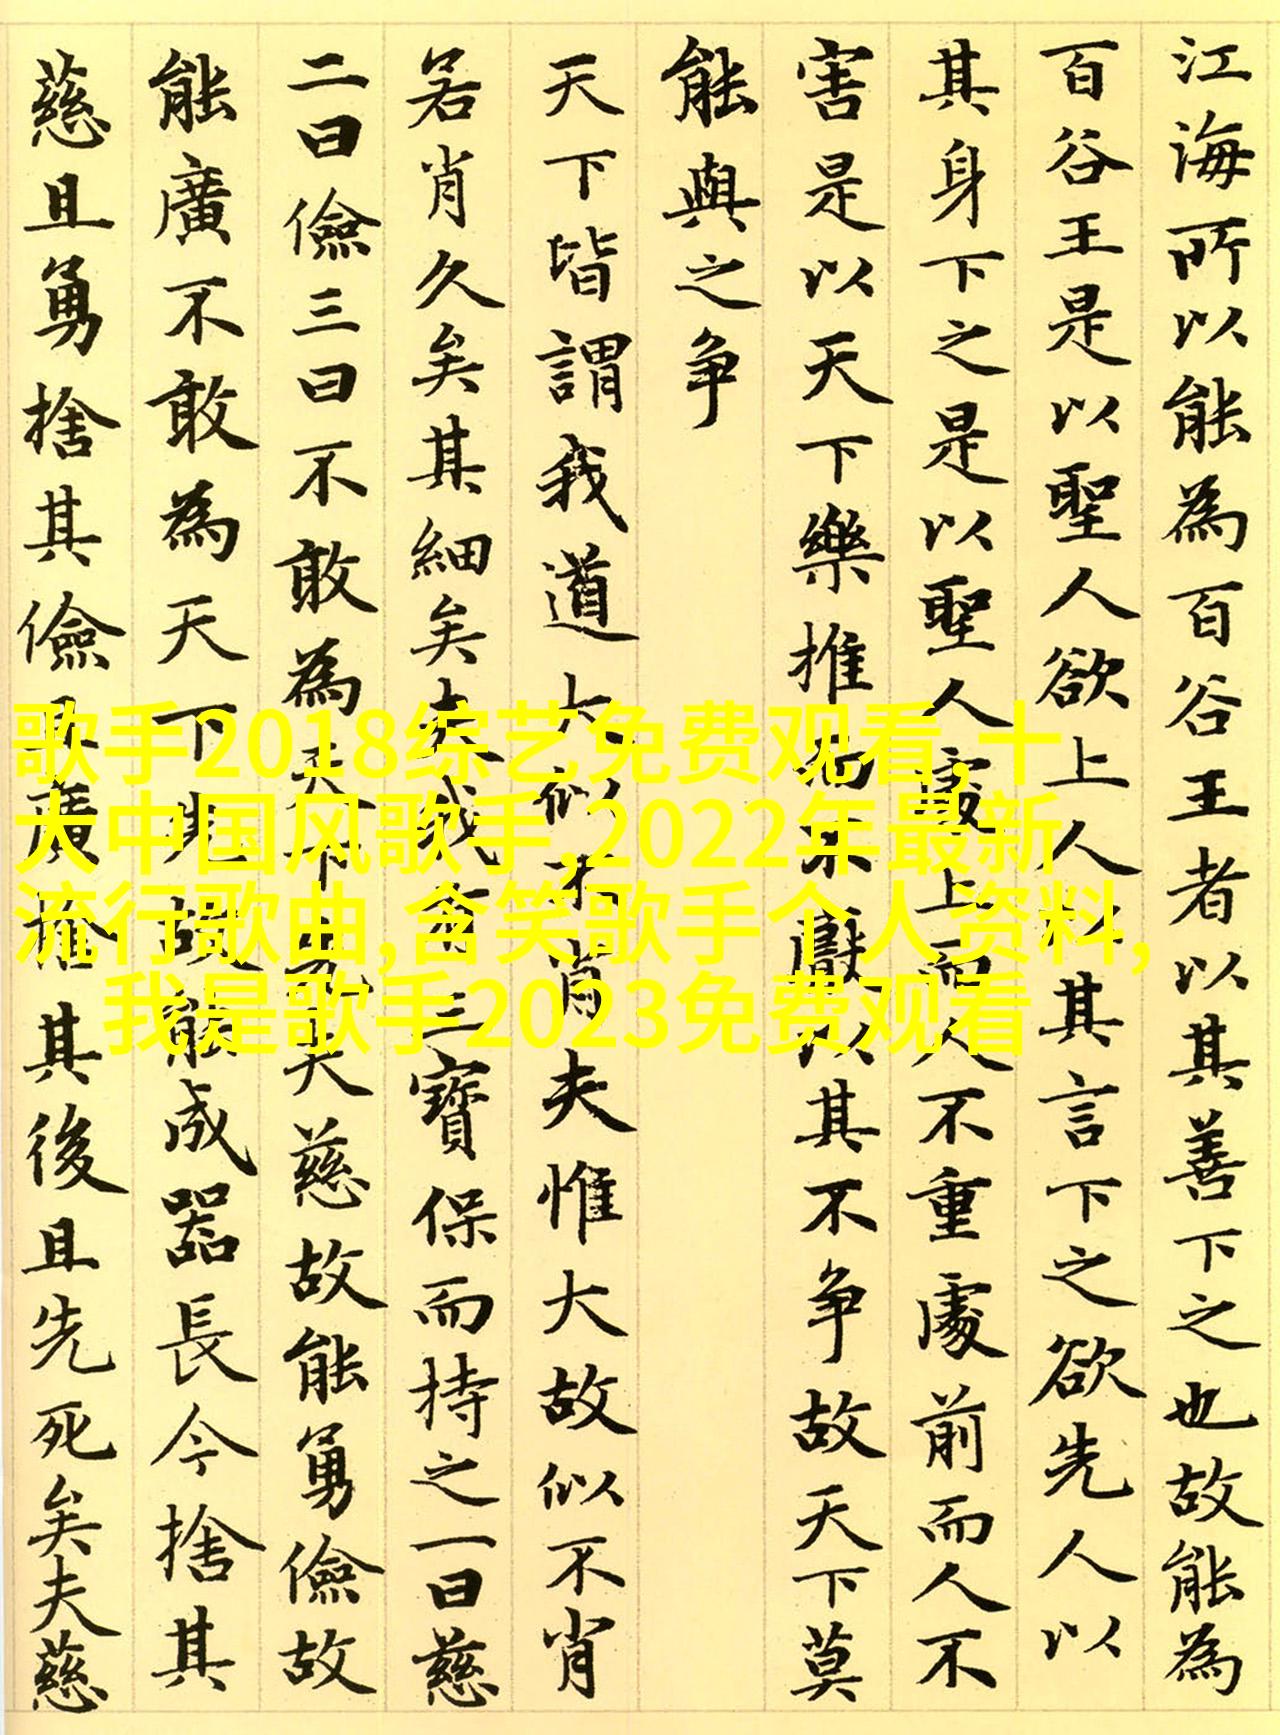 江海所以能為百谷王者以其善下之也故能為
百谷王是以聖人欲上人以其言下之欲先人以
其身下之是以聖人處上而人不重處前而人不
害是以天下樂推而不以其不争故天下莫
能與之争
天下皆謂我道大似不肖夫惟大故似不肖
若肖久矣其細矣夫我有三寶保而持之一曰慈
二曰儉三曰不敢為天下先夫慈故能勇儉故
能廣不敢為天下先故能成器長今捨其
慈且勇捨其儉且廣捨其後且先死矣夫慈
歌手2018综艺免费观看,十
大中国风歌手,2022年最新
流行歌曲,含笑歌手个人资料,
我是歌手2023免费观看